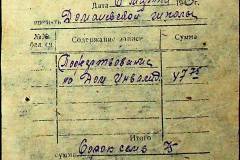 Дата 6 марта 19
Домачевской школы
№№ Содержание записи Сумма
Пожертвование
в Дом Инвалид. 47 75
Итого
Сумма Сорок семь 75